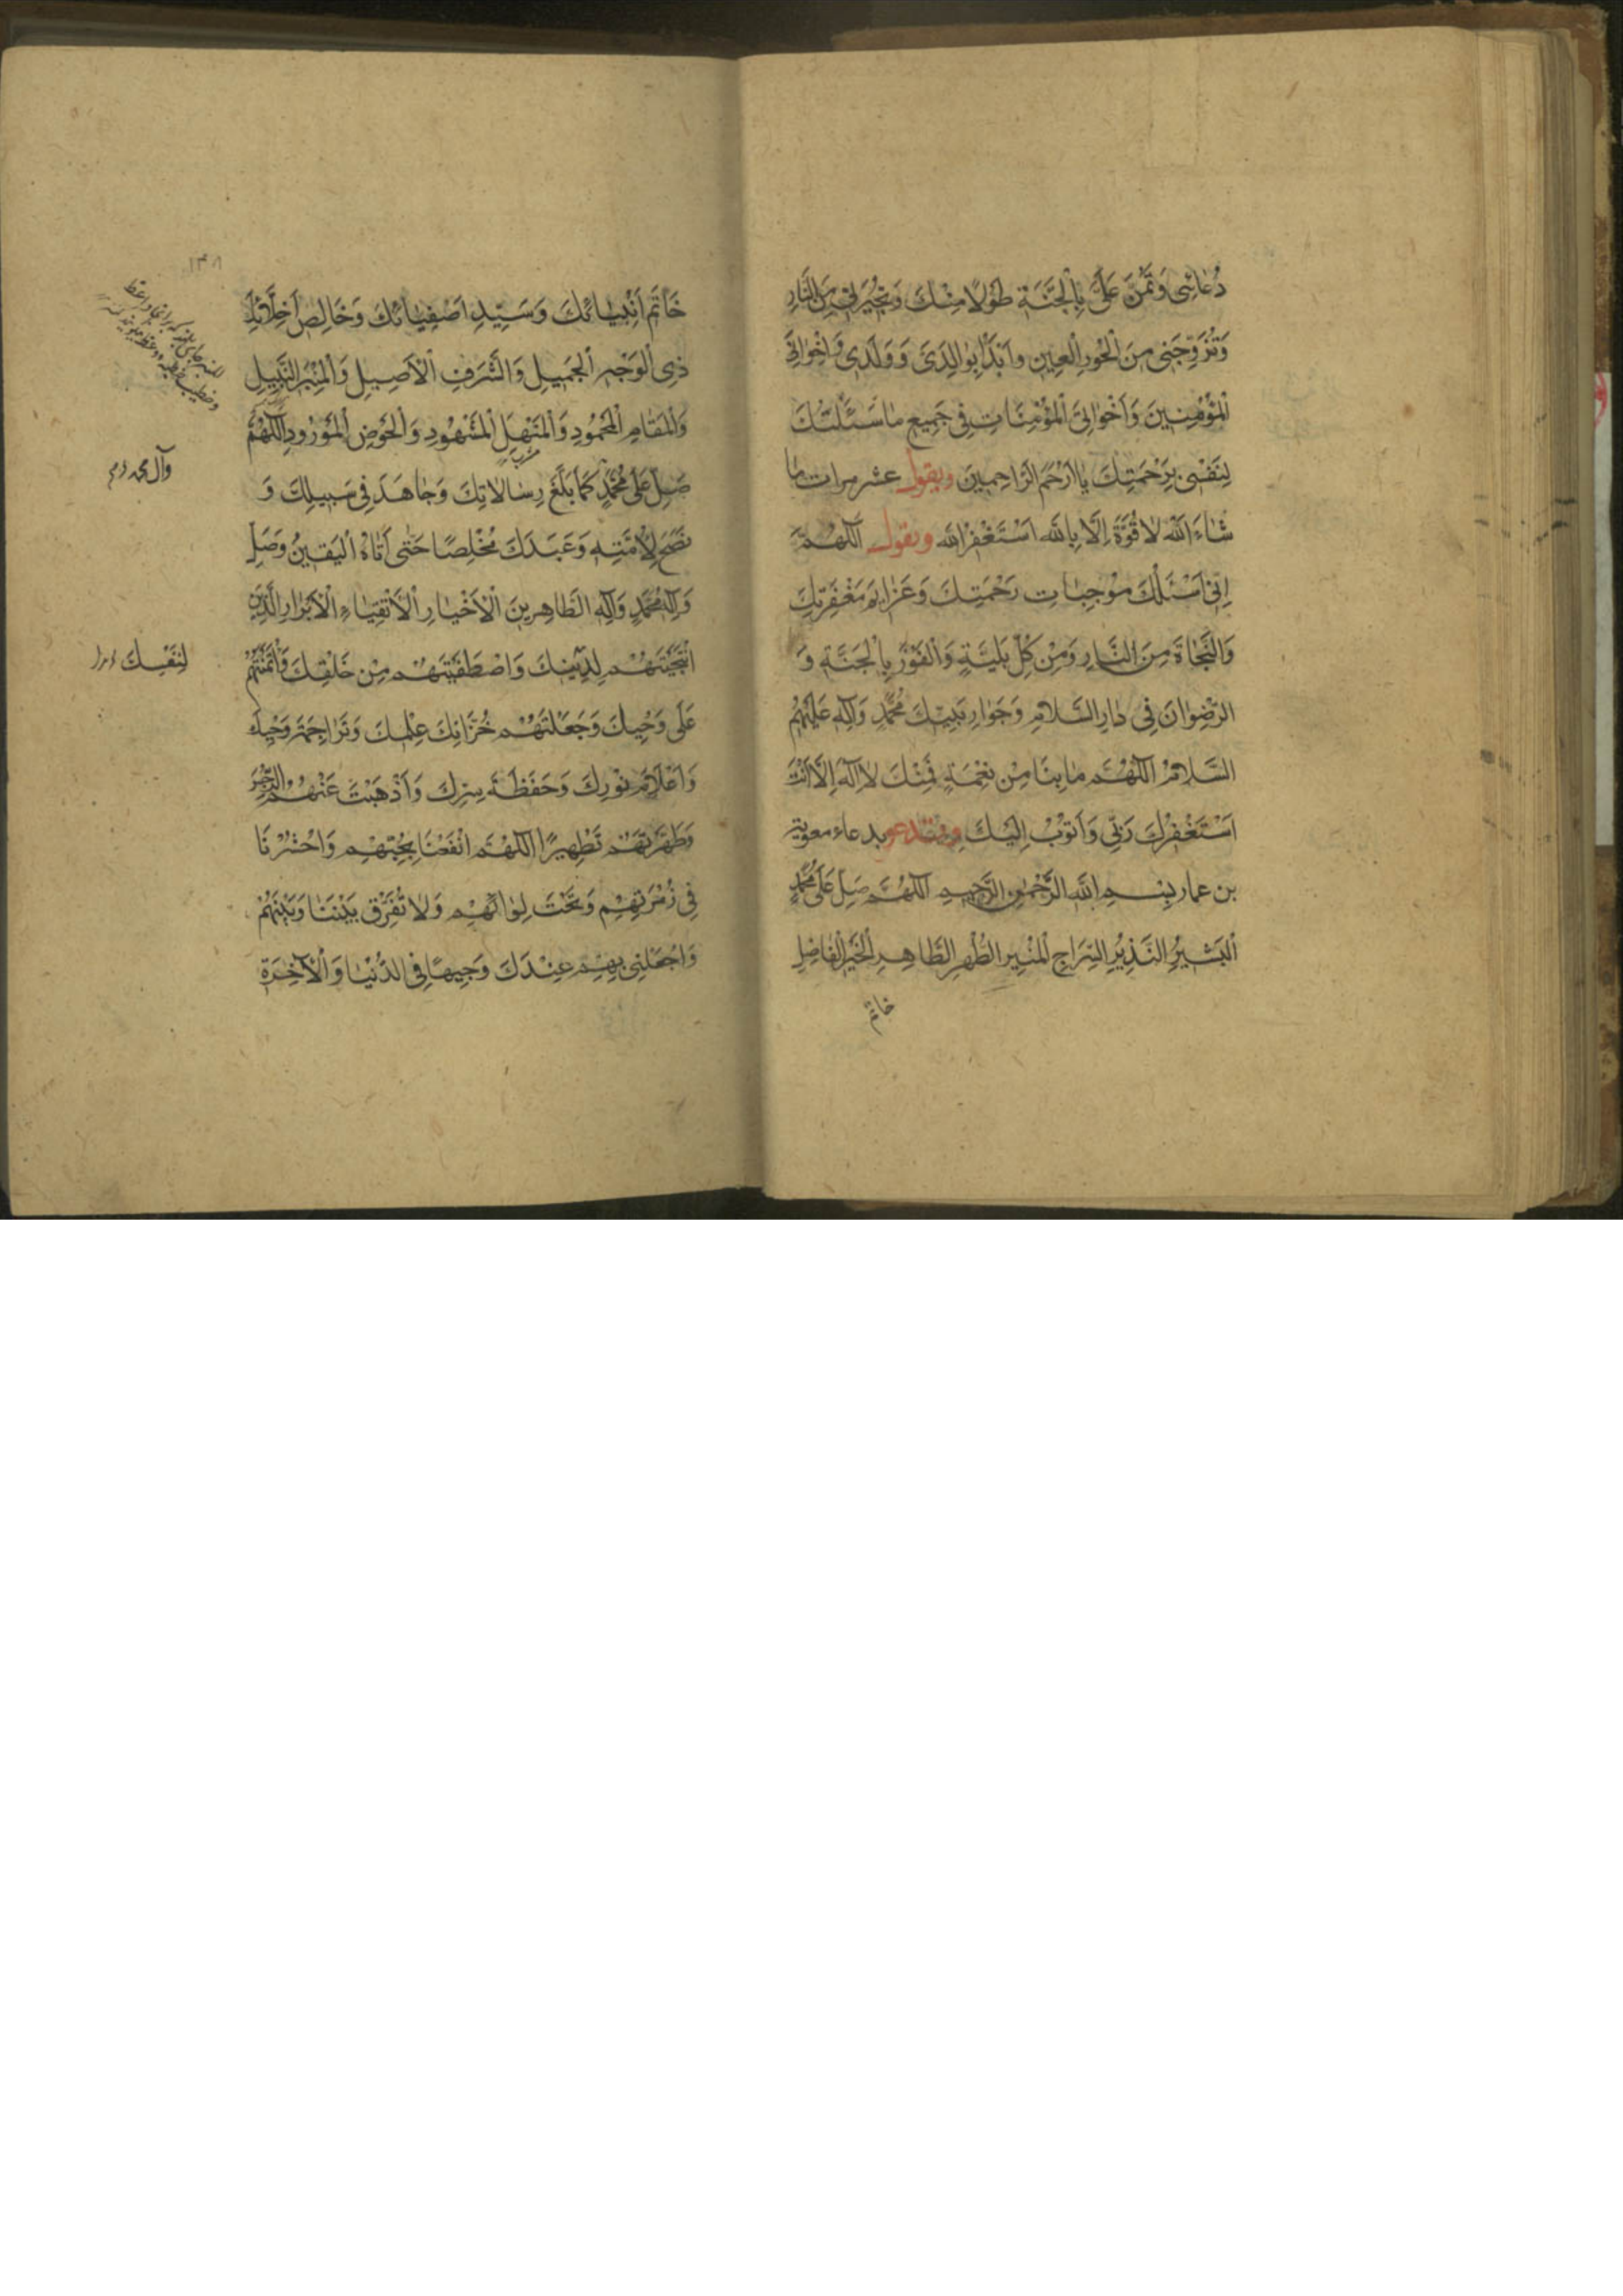 دُعَائِی وَتَمُنَّ عَلَیَّ بِالْجَنَّةِ طَوْلًا مِنْكَ وَتُجِيرَنِی مِنَ النَّارِ
وَتُزَوِّجَنِی مِنَ الْحُورِ الْعِينِ وابْدَأْ بِوالِدَیَّ وَوَلَدِی وَاِخْوَانِیَ
الْمُؤْمِنِينَ وَاَخَوَاتِیَ الْمُؤْمِنَاتِ فِی جَمِيعِ مَا سَئَلْتُكَ
لِنَفْسِی بِرَحْمَتِكَ يَا اَرْحَمَ الرَّاحِمِينَ ويقول عشر مرات ما
شَاءَ اللهُ لَا قُوَّةَ اِلَّا بِاللهِ اَسْتَغْفِرُ اللهَ ويقول اَللّٰهُمَّ
اِنِّی اَسْئَلُكَ مُوْجِبَاتِ رَحْمَتِكَ وَعَزَائِمَ مَغْفِرَتِكَ
وَالنَّجَاةَ مِنَ النَّارِ وَمِنْ كُلِّ بَلِيَّةٍ وَالْفَوْزَ بِالْجَنَّةِ وَ
الرِّضْوَانَ فِی دَارِ السَّلَامِ وَجَوَارِ نَبِيِّكَ مُحَمَّدٍ وَآلِهِ عَلَيْهِمُ
السَّلَامُ اَللّٰهُمَّ مَا بِنَا مِنْ نِعْمَةٍ فَمِنْكَ لَا اِلٰهَ اِلَّا اَنْتَ
اَسْتَغْفِرُكَ رَبِّی وَاَتُوْبُ اِلَيْكَ بدعاء معوية
بن عمار بِسْمِ اللهِ الرَّحْمٰنِ الرَّحِيمِ اَللّٰهُمَّ صَلِّ عَلَی مُحَمَّدٍ
الْبَشِيرِ النَّذِيرِ السِّرَاجِ الْمُنِيرِ الطُّهْرِ الطَّاهِرِ الْخَيِّرِ الْفَاضِلِ
خاتم
١٣٨
خَاتَمِ اَنْبِيَائِكَ وَسَيِّدِ اَصْفِيَائِكَ وَخَالِصِ اَخِلَّائِكَ
ذِی الْوَجْهِ الْجَمِيلِ وَالشَّرَفِ الْاَصِيلِ وَالْمِنْبَرِ النَّبِيلِ
وَالْمَقَامِ الْمَحْمُودِ وَالْمَنْهَلِ الْمَشْهُودِ وَالْحَوْضِ الْمَوْرُودِ اَللّٰهُمَّ
صَلِّ عَلَی مُحَمَّدٍ كَمَا بَلَّغَ رِسَالَاتِكَ وَجَاهَدَ فِی سَبِيلِكَ وَ
وآل محمد
نَصَحَ لِاُمَّتِهِ وَعَبَدَكَ مُخْلِصًا حَتّٰی اَتَاهُ الْيَقِينُ وَصَلِّ
مُحَمَّدٍ وَآلِهِ الطَّاهِرِينَ الْاَخْيَارِ الْاَتْقِيَاءِ الْاَبْرَارِ الَّذِينَ
انْتَجَبْتَهُمْ لِدِينِكَ وَاصْطَفَيْتَهُمْ مِنْ خَلْقِكَ وَائْتَمَنْتَهُمْ
لِنَفْسِكَ
عَلَی وَحْيِكَ وَجَعَلْتَهُمْ خُزَّانِكَ عِلْمِكَ وَتَرَاجِمَةَ وَحْيِكَ
وَاَعْلَامَ نُوْرِكَ وَحَفَظَةَ سِرِّكَ وَاَذْهَبْتَ عَنْهُمُ الرِّجْسَ
وَطَهَّرْتَهُمْ تَطْهِيرًا اَللّٰهُمَّ انْفَعْنَا بِحُبِّهِمْ وَاحْشُرْنَا
فِی زُمْرَتِهِمْ وَتَحْتَ لِوَائِهِمْ وَلَا تُفَرِّقْ بَيْنَنَا وَبَيْنَهُمْ
وَاجْعَلْنِی بِهِمْ عِنْدَكَ وَجِيهًا فِی الدُّنْيَا وَالْآخِرَةِ